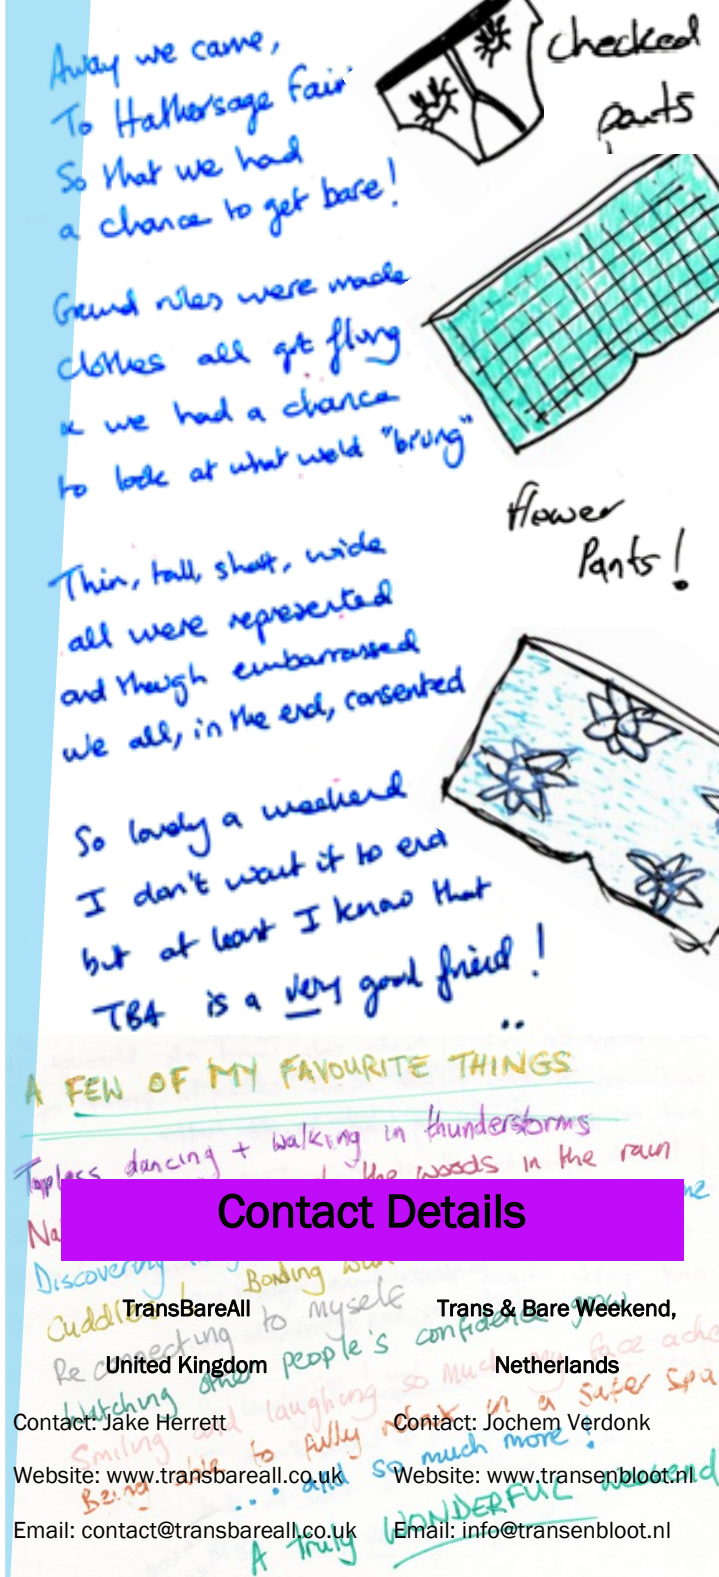 Away we came,
To Hathersage Fair
So that we had
a chance to get bare!
Ground rules were made
clothes all got flung
& we had a chance
to look at what we'd "brung"
Thin, tall, short, wide
all were represented
and though embarrassed
we all, in the end, consented
So lovely a weekend
I don't want it to end
but at least I know that
TBA is a very good friend!
checked
pants
flower
Pants!
A FEW OF MY FAVOURITE THINGS
Topless dancing + walking in thunderstorms
the woods in the rain
Discovering
Bonding
Cuddles!
Reconnecting to myself
Watching other people's confidence grow
Smiling and laughing so much my face ache
Being able to fully relax in a safer spa
... and so much more!
A truly WONDERFUL weekend
Contact Details
TransBareAll
United Kingdom
Contact: Jake Herrett
Website: www.transbareall.co.uk
Email: contact@transbareall.co.uk
Trans & Bare Weekend,
Netherlands
Contact: Jochem Verdonk
Website: www.transenbloot.nl
Email: info@transenbloot.nl